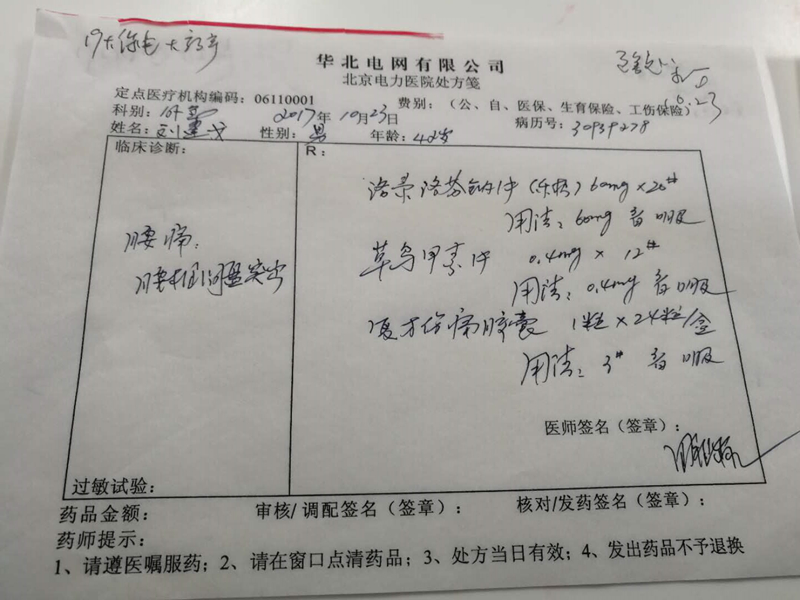 华北电网有限公司
北京电力医院处方笺
定点医疗机构编码：06110001 费别：（公、自、医保、生育保险、工伤保险）
科别： 2017年10月23日 病历号：30939278
姓名：刘 性别：男 年龄：42岁
临床诊断： R：
洛索洛芬钠片 60mg×20#
用法：60mg
腰痛：
草乌甲素片 0.4mg × 12#
腰椎间盘突出
用法：0.4mg
复方伤痛胶囊 1粒×24粒/盒
用法：3#
医师签名（签章）：
过敏试验：
药品金额： 审核/调配签名（签章）： 核对/发药签名（签章）：
药师提示：
1、请遵医嘱服药；2、请在窗口点清药品；3、处方当日有效；4、发出药品不予退换